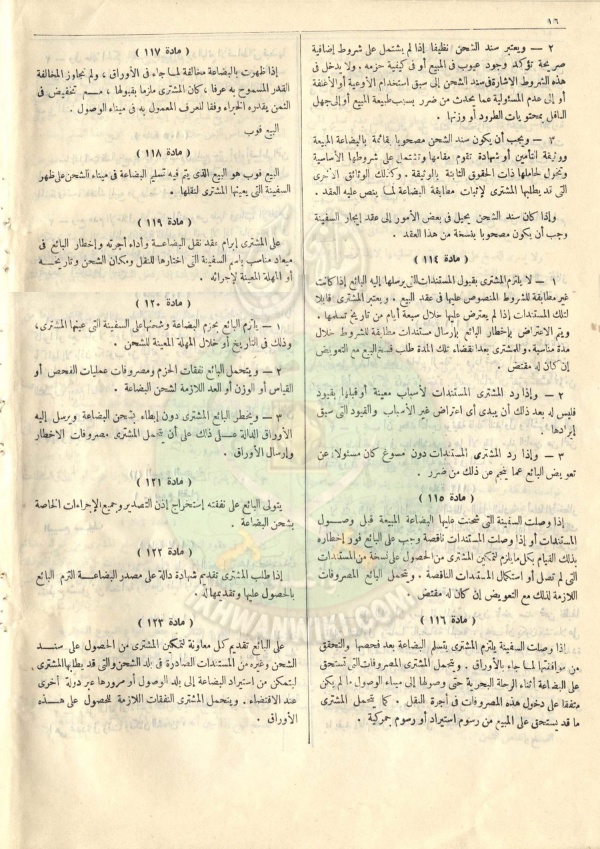 ١٦
٢ — ويعتبر سند الشحن نظيفا إذا لم يشتمل على شروط إضافية
صريحة تؤكد وجود عيوب فى المبيع أو فى كيفية حزمه . ولا يدخل فى
هذه الشروط الاشارة فى سند الشحن إلى سبق استخدام الأوعية أو الأغلفة
أو إلى عدم المسئولية عما يحدث من ضرر بسبب طبيعة المبيع أو إلى جهل
الناقل بمحتويات الطرود أو وزنها .
٣ — ويجب أن يكون سند الشحن مصحوبا بقائمة بالبضاعة المبيعة
ووثيقة التأمين أو شهادة تقوم مقامها وتشتمل على شروطها الأساسية
وتخول لحاملها ذات الحقوق الثابتة بالوثيقة ، وكذلك الوثائق الأخرى
التى قد يطلبها المشترى لإثبات مطابقة البضاعة لما ينص عليه العقد .
وإذا كان سند الشحن يحيل فى بعض الأمور إلى عقد إيجار السفينة
وجب أن يكون مصحوبا بنسخة من هذا العقد .
( مادة ١١٤ )
١ — لا يلتزم المشترى بقبول المستندات التى يرسلها إليه البائع إذا كانت
غير مطابقة للشروط المنصوص عليها فى عقد البيع . ويعتبر المشترى قابلا
لتلك المستندات إذا لم يعترض عليها خلال سبعة أيام من تاريخ تسلمها .
ويتم الاعتراض بإخطار البائع بإرسال مستندات مطابقة للشروط خلال
مدة مناسبة . والمشترى بعد انقضاء تلك المدة طلب فسخ البيع مع التعويض
إن كان له مقتض .
٢ — وإذا رد المشترى المستندات لأسباب معينة أو قبلها بقيود
فليس له بعد ذلك أن يبدى أى اعتراض غير الأسباب والقيود التى سبق
إيرادها .
٣ — وإذا رد المشترى المستندات دون مسوغ كان مسئولا عن
تعويض البائع عما ينجم عن ذلك من ضرر .
( مادة ١١٥ )
إذا وصلت السفينة التى شحنت عليها البضاعة المبيعة قبل وصول
المستندات أو إذا وصلت المستندات ناقصة وجب على البائع فور إخطاره
بذلك القيام بكل ما يلزم لتمكين المشترى من الحصول على نسخة من المستندات
التى لم تصل أو استكمال المستندات الناقصة . ويتحمل البائع المصروفات
اللازمة لذلك مع التعويض إن كان له مقتض .
( مادة ١١٦ )
إذا وصلت السفينة يلتزم المشترى بتسلم البضاعة بعد فحصها والتحقق
من موافقتها لما جاء بالأوراق . ويتحمل المشترى المصروفات التى تستحق
على البضاعة أثناء الرحلة البحرية حتى وصولها إلى ميناء الوصول ما لم يكن
متفقا على دخول هذه المصروفات فى أجرة النقل . كما يتحمل المشترى
ما قد يستحق على المبيع من رسوم استيراد أو رسوم جمركية .
( مادة ١١٧ )
إذا ظهرت بالبضاعة مخالفة لما جاء فى الأوراق ، ولم تجاوز المخالفة
القدر المسموح به عرفا ، كان المشترى ملزما بقبولها ، مع تخفيض فى
الثمن يقدره الخبراء وفقا للعرف المعمول به فى ميناء الوصول .
البيع فوب
( مادة ١١٨ )
البيع فوب هو البيع الذى يتم فيه تسلم البضاعة فى ميناء الشحن على ظهر
السفينة التى يعينها المشترى لنقلها .
( مادة ١١٩ )
على المشترى إبرام عقد نقل البضاعة وأداء أجرته وإخطار البائع فى
ميعاد مناسب باسم السفينة التى اختارها للنقل ومكان الشحن وتاريخه
أو المهلة المعينة لإجرائه .
( مادة ١٢٠ )
١ — يلتزم البائع بحزم البضاعة وشحنها على السفينة التى عينها المشترى ،
وذلك فى التاريخ أو خلال المهلة المعينة للشحن .
٢ — ويتحمل البائع نفقات الحزم ومصروفات عمليات الفحص أو
القياس أو الوزن أو العد اللازمة لشحن البضاعة .
٣ — ويخطر البائع المشترى دون إبطاء بشحن البضاعة ويرسل إليه
الأوراق الدالة على ذلك على أن يتحمل المشترى مصروفات الاخطار
وإرسال الأوراق .
( مادة ١٢١ )
يتولى البائع على نفقته إستخراج إذن التصدير وجميع الإجراءات الخاصة
بشحن البضاعة .
( مادة ١٢٢ )
إذا طلب المشترى تقديم شهادة دالة على مصدر البضاعة التزم البائع
بالحصول عليها وتقديمها له .
( مادة ١٢٣ )
على البائع تقديم كل معاونة لتمكين المشترى من الحصول على سند
الشحن وغيره من المستندات الصادرة فى بلد الشحن والتى قد يطلبها المشترى
ليتمكن من استيراد البضاعة إلى بلد الوصول أو مرورها عبر دولة أخرى
عند الاقتضاء . ويتحمل المشترى النفقات اللازمة للحصول على هذه
الأوراق .
IKHWANWIKI.COM